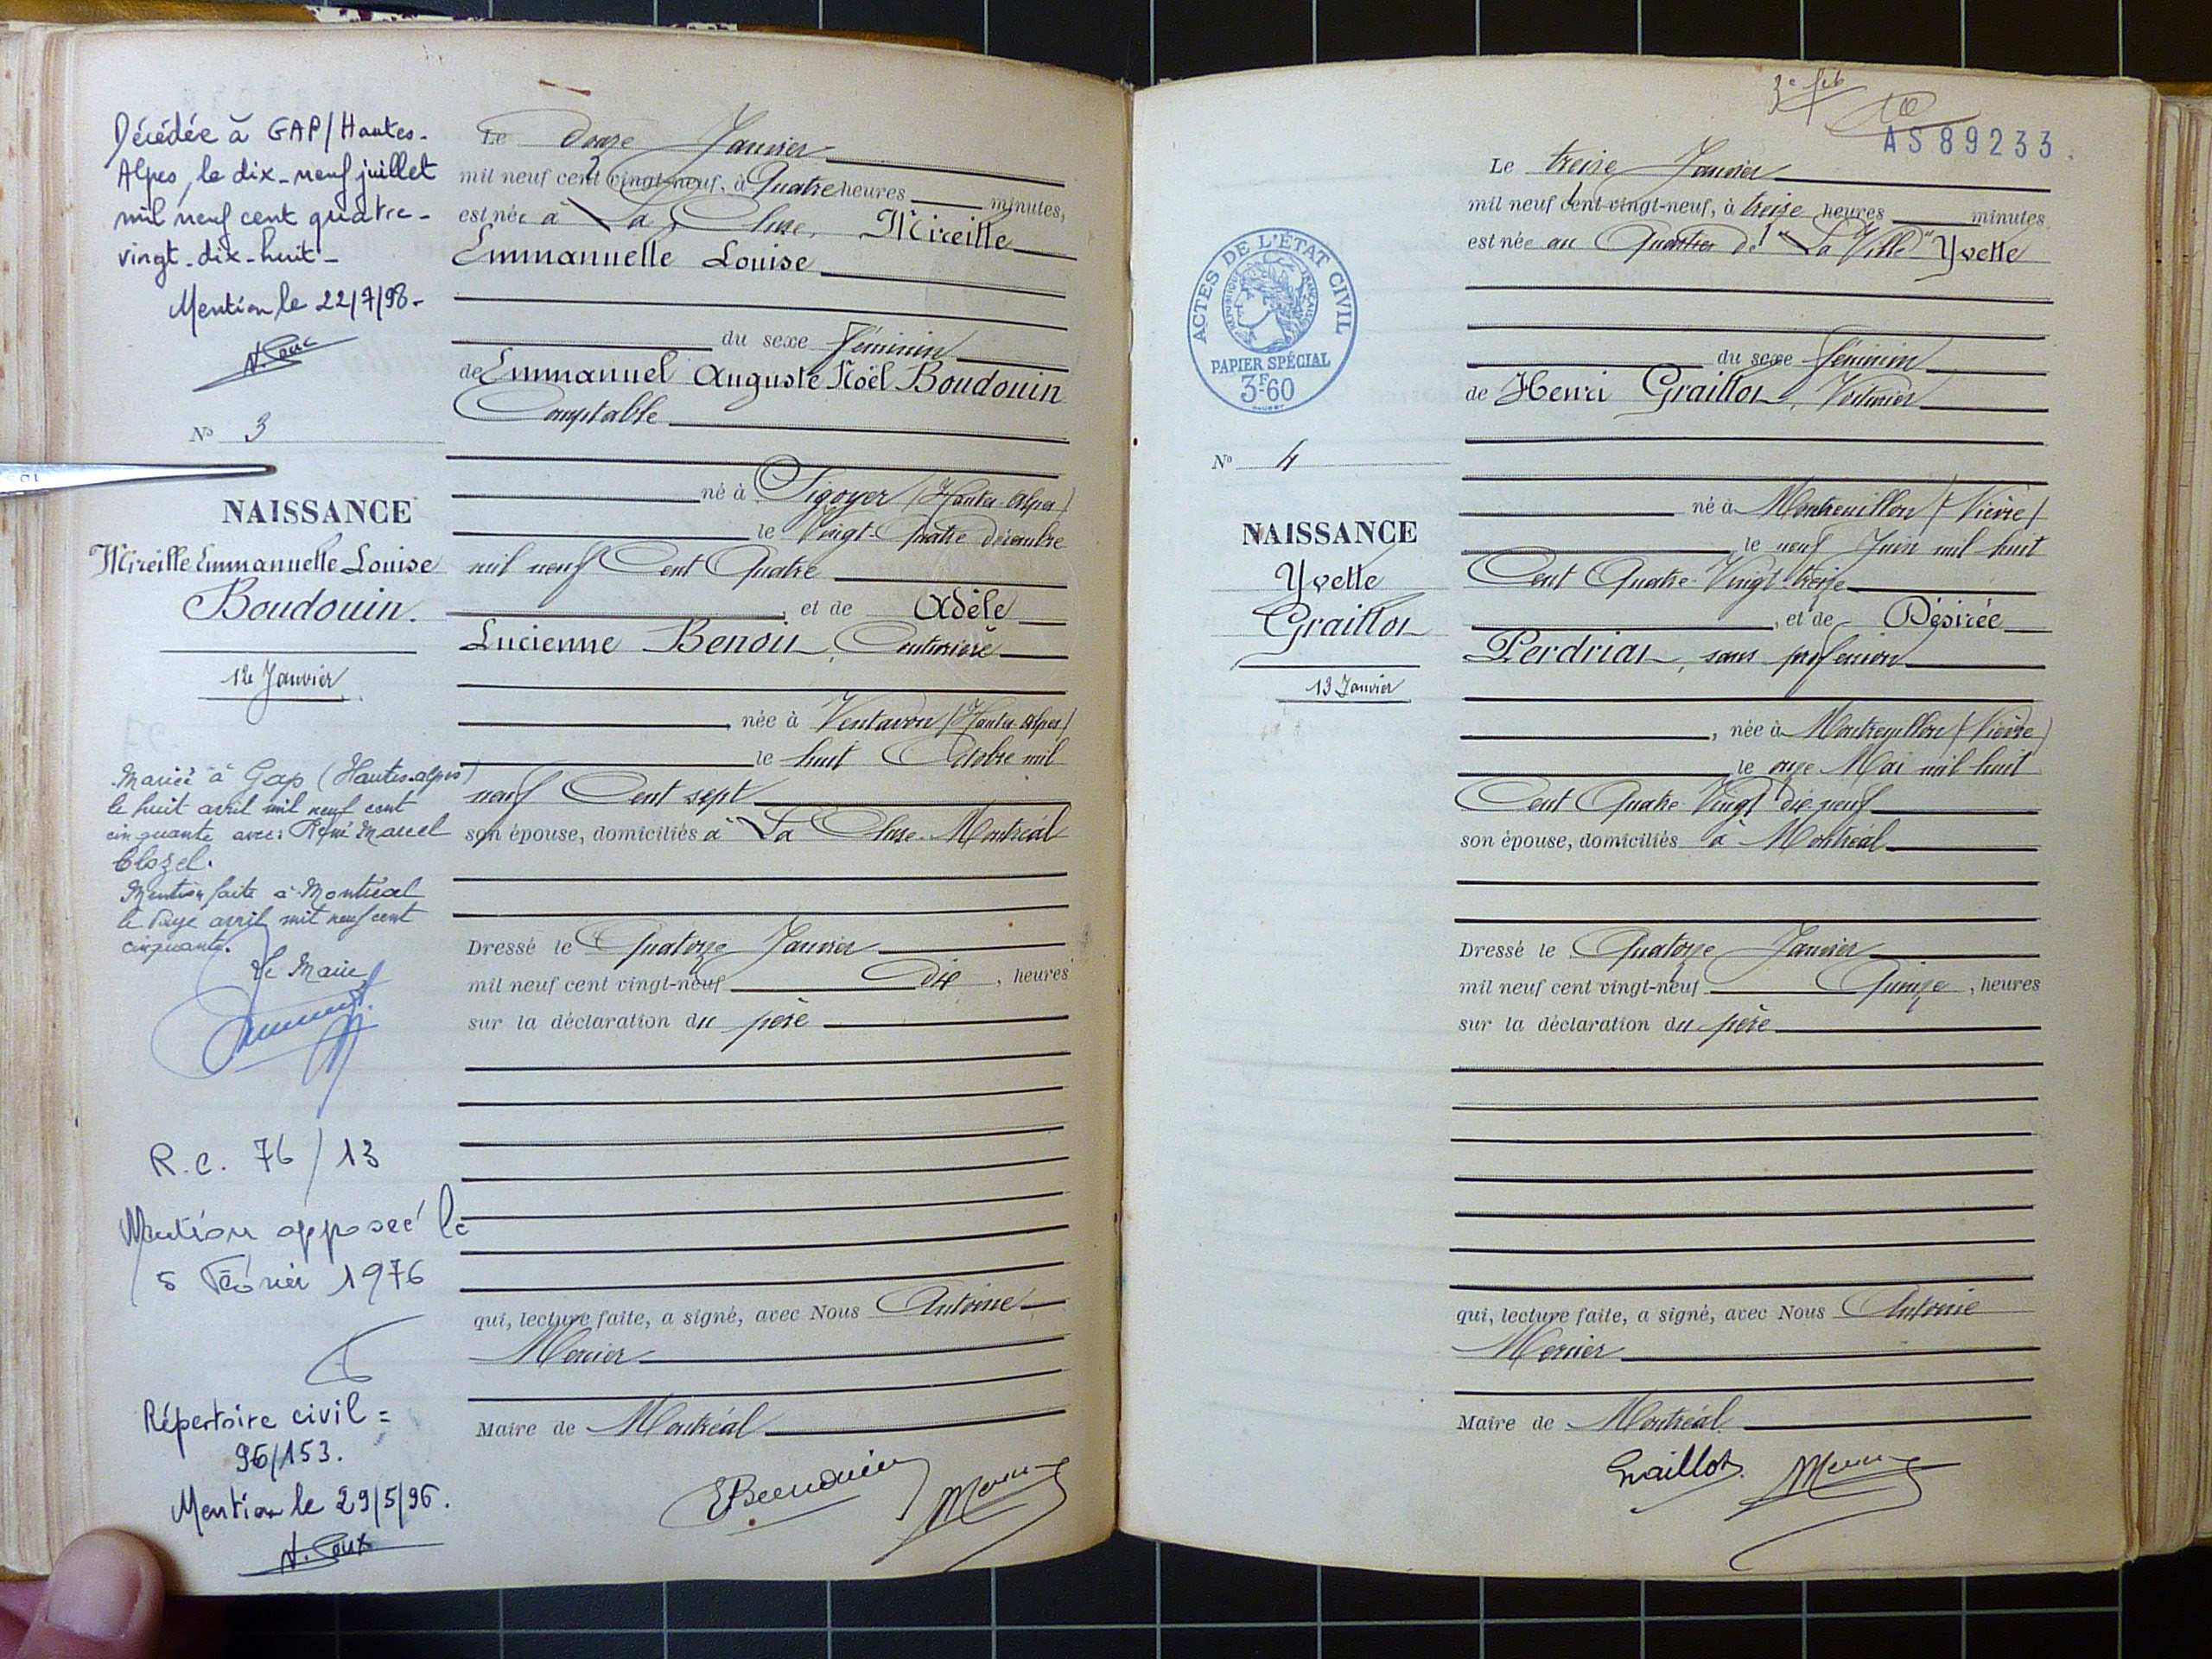 Décédée à GAP/Hautes-
Alpes, le dix-neuf juillet
mil neuf cent quatre-
vingt-dix-huit-
Mention le 22/7/98-
N° 3
NAISSANCE
Mireille Emmanuelle Louise
Boudouin.
12 Janvier
Mariée à Gap (Hautes-alpes)
le huit avril mil neuf cent
cinquante avec: René Marcel
Clozel.
Mention faite à Montréal
le avril mil neuf cent
cinquante.
Le Maire
R.C. 76/13
Mention apposée le
5 Février 1976
Répertoire civil =
96/153.
Mention le 29/5/96.
Le douze Janvier
mil neuf cent vingt-neuf, à Quatre heures minutes,
est née à La Cluse, Mireille
Emmanuelle Louise
du sexe féminin
de Emmanuel Auguste Noël Boudouin
Comptable
né à Sigoyer (Hautes-Alpes)
le Vingt-Quatre décembre
mil neuf Cent Quatre
, et de Adèle
Lucienne Benoit, Couturière
née à Ventavon (Hautes-Alpes)
le huit Octobre mil
neuf Cent sept
son épouse, domiciliés à La Cluse-Montréal
Dressé le Quatorze Janvier
mil neuf cent vingt-neuf Dix, heures
sur la déclaration du père
qui, lecture faite, a signé, avec Nous Antoine
Mercier
Maire de Montréal
EBoudouin
AS 89233.
ACTES DE L'ÉTAT CIVIL
RÉPUBLIQUE FRANÇAISE
PAPIER SPÉCIAL
3F60
N° 4
NAISSANCE
Yvette
Graillot
13 Janvier
Le treize Janvier
mil neuf cent vingt-neuf, à treize heures minutes
est née au Quartier de "La Ville" Yvette
du sexe féminin
de Henri Graillot, Voiturier
né à Montreuillon (Nièvre)
le neuf Juin mil huit
Cent Quatre-Vingt-treize
, et de Désirée
Perdriat, sans profession
, née à Montreuillon (Nièvre)
le onze Mai mil huit
Cent Quatre Vingt dix neuf
son épouse, domiciliés à Montréal
Dressé le Quatorze Janvier
mil neuf cent vingt-neuf Quinze, heures
sur la déclaration du père
qui, lecture faite, a signé, avec Nous Antoine
Mercier
Maire de Montréal
Graillot.